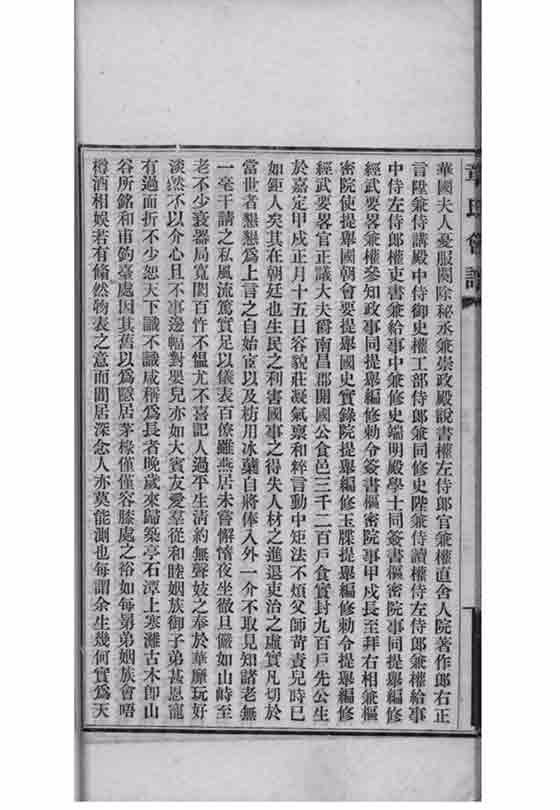 章氏會譜
華國夫人憂服闋除秘丞兼崇政殿說書權左侍郎官兼權直舍人院著作郎右正
言陞兼侍講殿中侍御史權工部侍郎兼同修史陞兼侍讀權侍左侍郎兼權給事
中侍左侍郎權吏書兼給事中兼修史端明殿學士同簽書樞密院事同提舉編修
經武要畧兼權參知政事同提舉編修勅令簽書樞密院事甲戌長至拜右相兼樞
密院使提舉國朝會要提舉國史實錄院提舉編修玉牒提舉編修勅令提舉編修
經武要畧官正議大夫爵南昌郡開國公食邑三千二百戶食實封九百戶先公生
於嘉定甲戌正月十五日容貌莊凝氣禀和粹言動中矩法不煩父師苛責兒時已
如鉅人矣其在朝廷也生民之利害國事之得失人材之進退吏治之虛實凡切於
當世者懇懇爲上言之自始宦以及枋用冰蘗自將俸入外一介不取見知諸老無
一毫干請之私風流篤實足以儀表百僚雖燕居未嘗懈惰夜坐徹旦儼如山峙至
老不少衰器局寬閎百忤不慍尤不喜記人過平生淸約無聲妓之奉於華靡玩好
淡然不以介心且不事邊幅對嬰兒亦如大賓友愛羣從和睦姻族御子弟甚恩寵
有過而折不少恕天下識不識咸稱爲長者晚歲來歸築亭石潭上寒濰古木卽山
谷所銘和甫釣臺處因其舊以爲隱居茅椽僅僅容膝處之裕如每舅弟姻族會唔
樽酒相娛若有翛然物表之意而閒居深念人亦莫能測也每謂余生幾何實爲天